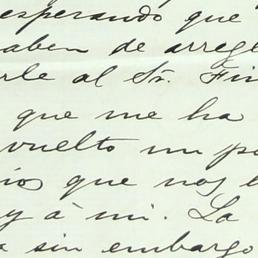 esperando que
aben de arreg
rle al Sr. Fin
que me ha
vuelto un po
ios que nos
y á mi. La
sin embargo